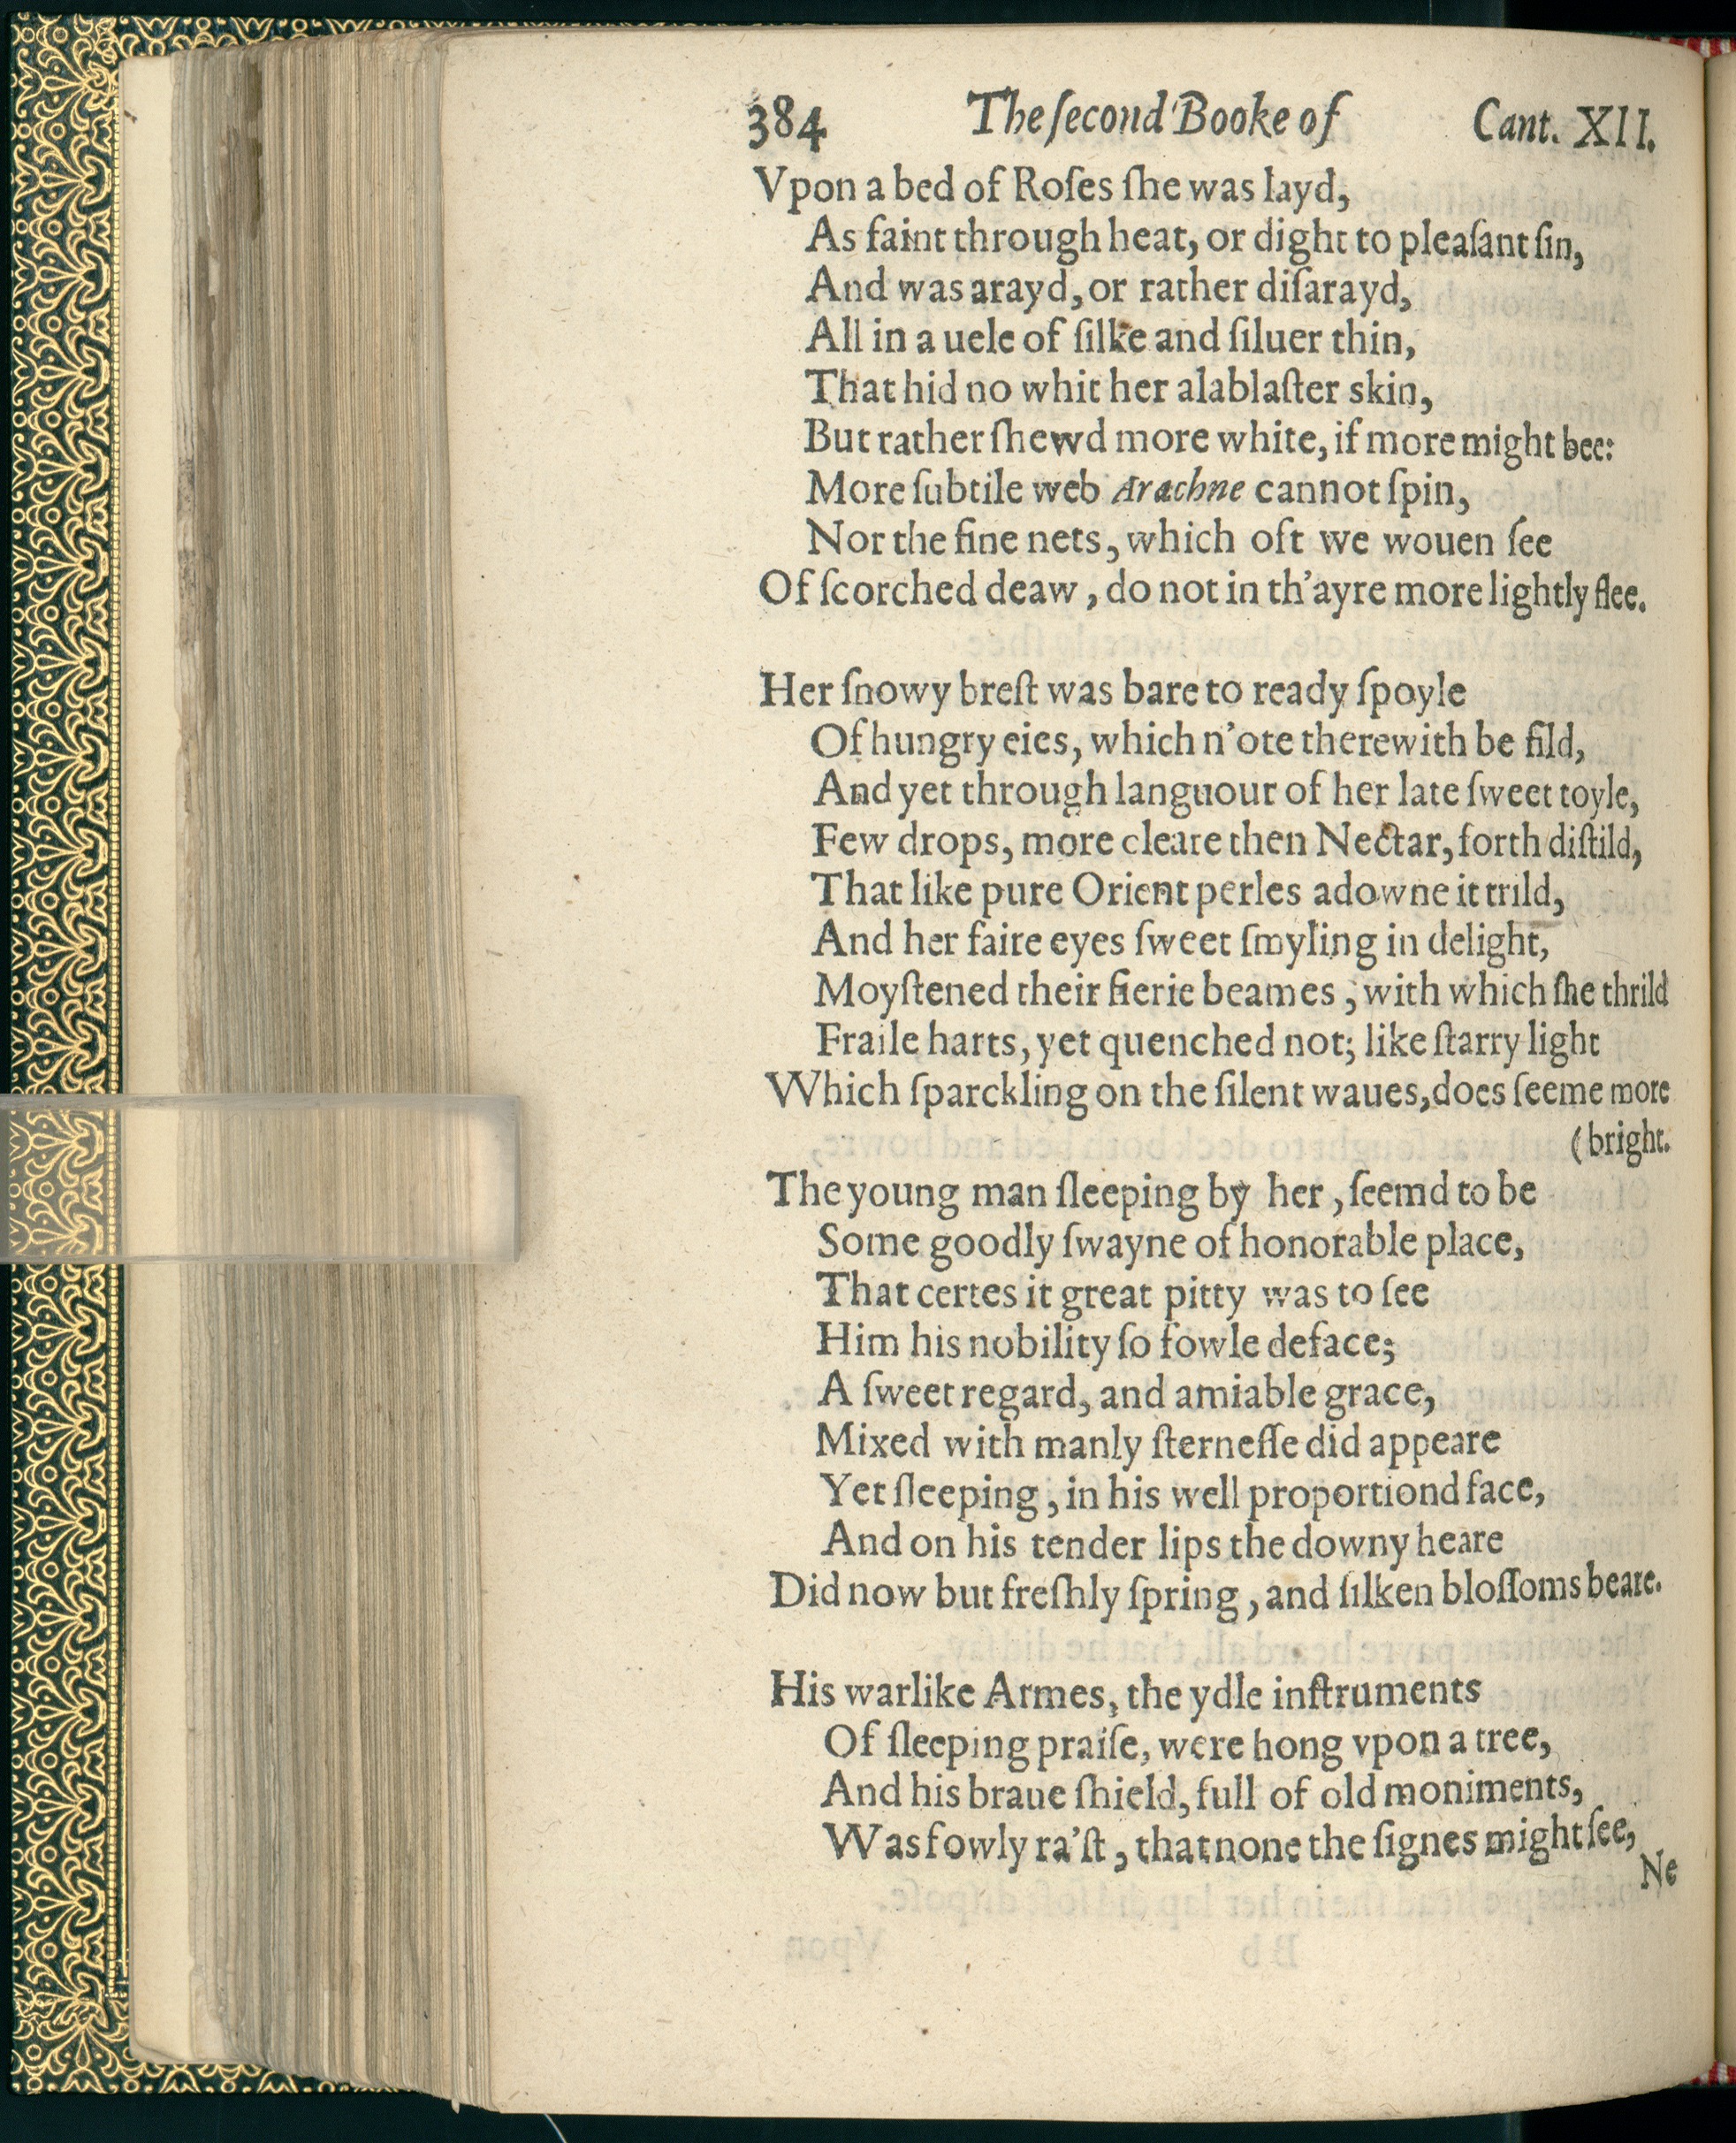 384 The ſecond Booke of Cant. XII.
Vpon a bed of Roſes ſhe was layd,
As faint through heat, or dight to pleaſant ſin,
And was arayd, or rather diſarayd,
All in a uele of ſilke and ſiluer thin,
That hid no whit her alablaſter skin,
But rather ſhewd more white, if more might bee:
More ſubtile web Arachne cannot ſpin,
Nor the fine nets, which oft we wouen ſee
Of ſcorched deaw, do not in th'ayre more lightly flee.
Her ſnowy breſt was bare to ready ſpoyle
Of hungry eies, which n'ote therewith be fild,
And yet through languour of her late ſweet toyle,
Few drops, more cleare then Nectar, forth diſtild,
That like pure Orient perles adowne it trild,
And her faire eyes ſweet ſmyling in delight,
Moyſtened their fierie beames, with which ſhe thrild
Fraile harts, yet quenched not; like ſtarry light
Which ſparckling on the ſilent waues, does ſeeme more
(bright.
The young man ſleeping by her, ſeemd to be
Some goodly ſwayne of honorable place,
That certes it great pitty was to ſee
Him his nobility ſo fowle deface;
A ſweet regard, and amiable grace,
Mixed with manly ſterneſſe did appeare
Yet ſleeping, in his well proportiond face,
And on his tender lips the downy heare
Did now but freſhly ſpring, and ſilken bloſſoms beare.
His warlike Armes, the ydle inſtruments
Of ſleeping praiſe, were hong vpon a tree,
And his braue ſhield, full of old moniments,
Was fowly ra'ſt, that none the ſignes might ſee,
Ne